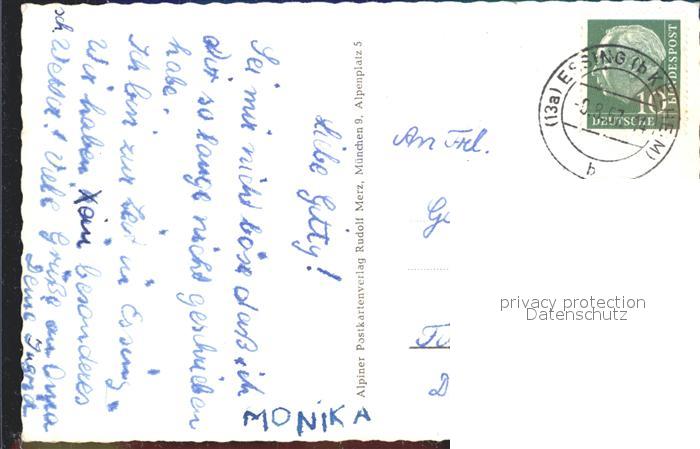 Liebe Gitty!
Sei mir nicht böse daß ich
Dir so lange nicht geschrieben
habe.
Ich bin zur Zeit in Essing
Wir haben kein besonderes
sch. Wetter! Viele Grüße an Oma
Deine Ingrid
MONIKA
Alpiner Postkartenverlag Rudolf Merz, München 9, Alpenplatz 5
An Frl.
(13a) ESSING
b
10
DEUTSCHE
BUNDESPOST
privacy protection
Datenschutz